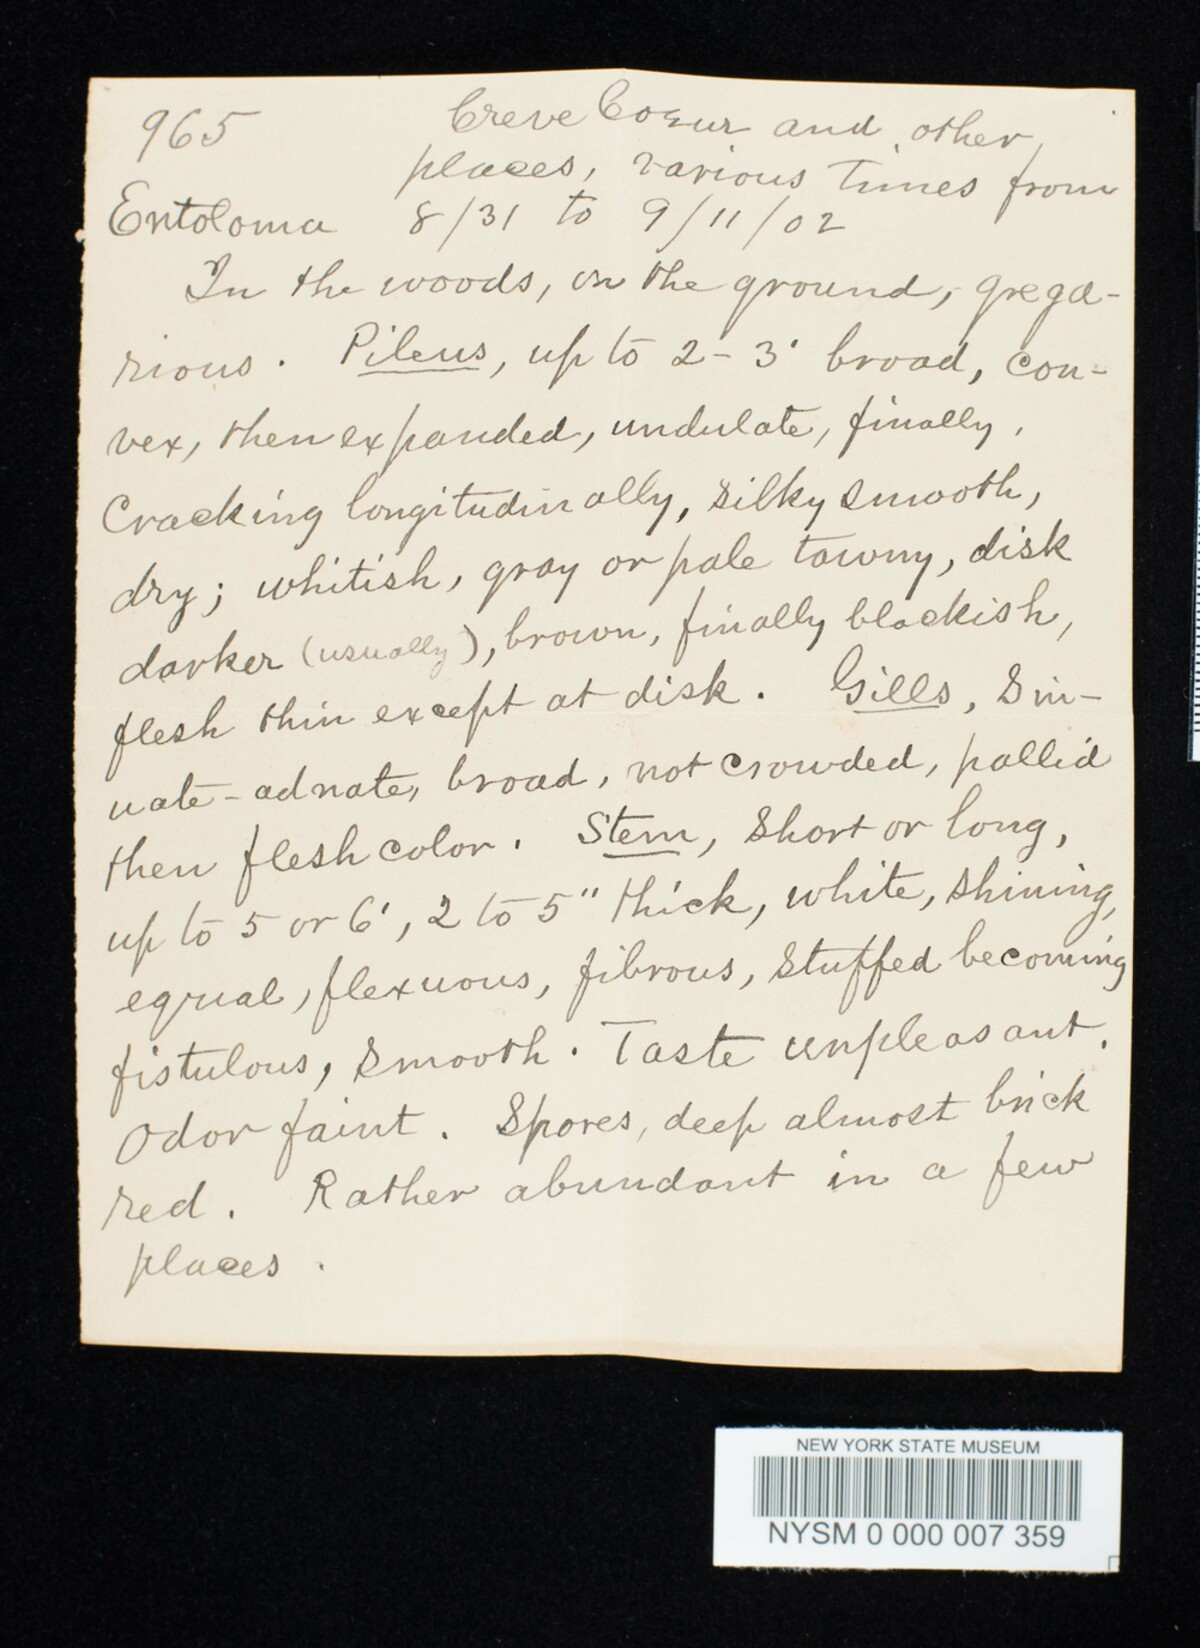 965
Creve Coeur and other
places, various times from
Entoloma 8/31 to 9/11/02
In the woods, on the ground, grega-
rious. Pileus, up to 2-3' broad, con-
vex, then expanded, undulate, finally,
Cracking longitudinally, silky smooth,
dry; whitish, gray or pale tawny, disk
darker (usually), brown, finally blackish,
flesh thin except at disk. Gills, sin-
uate-adnate, broad, not crowded, pallid
then flesh color. Stem, short or long,
up to 5 or 6', 2 to 5" thick, white, shining,
equal, flexuous, fibrous, stuffed becoming
fistulous, smooth. Taste unpleasant.
Odor faint. Spores, deep almost brick
red. Rather abundant in a few
places.
NEW YORK STATE MUSEUM
NYSM 0 000 007 359